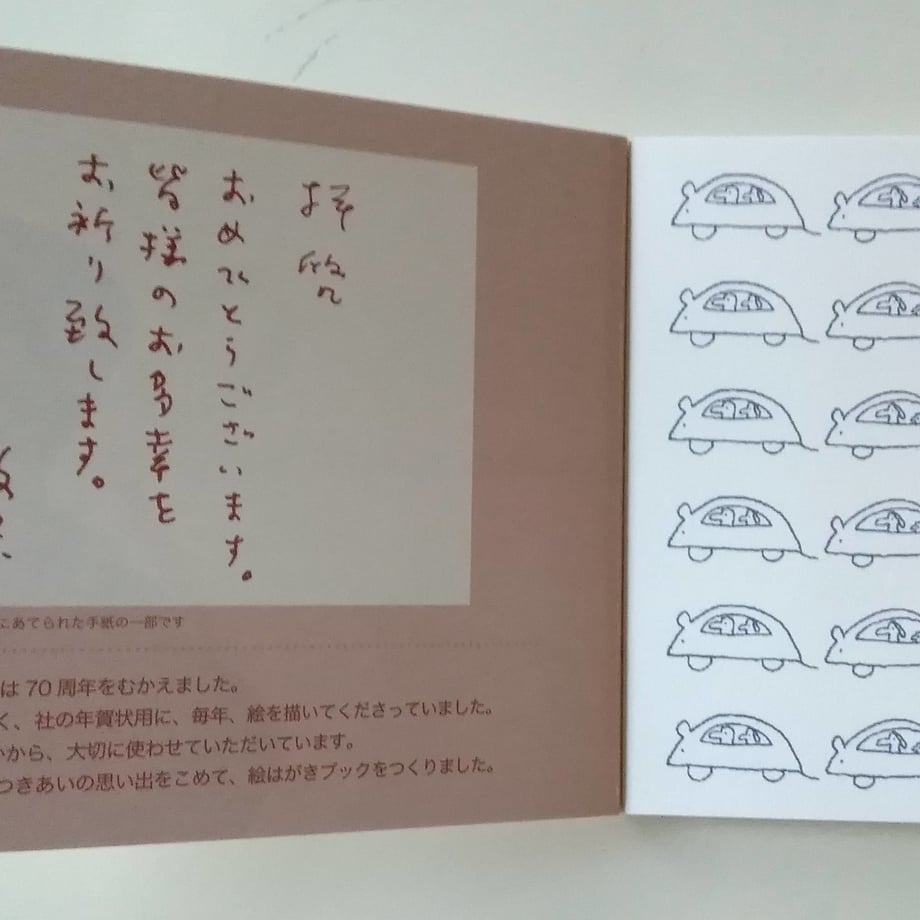 拝啓
おめでとうございます。
皆様のお多幸を
お祈り致します。
にあてられた手紙の一部です
は70周年をむかえました。
く、社の年賀状用に、毎年、絵を描いてくださっていました。
から、大切に使わせていただいています。
つきあいの思い出をこめて、絵はがきブックをつくりました。